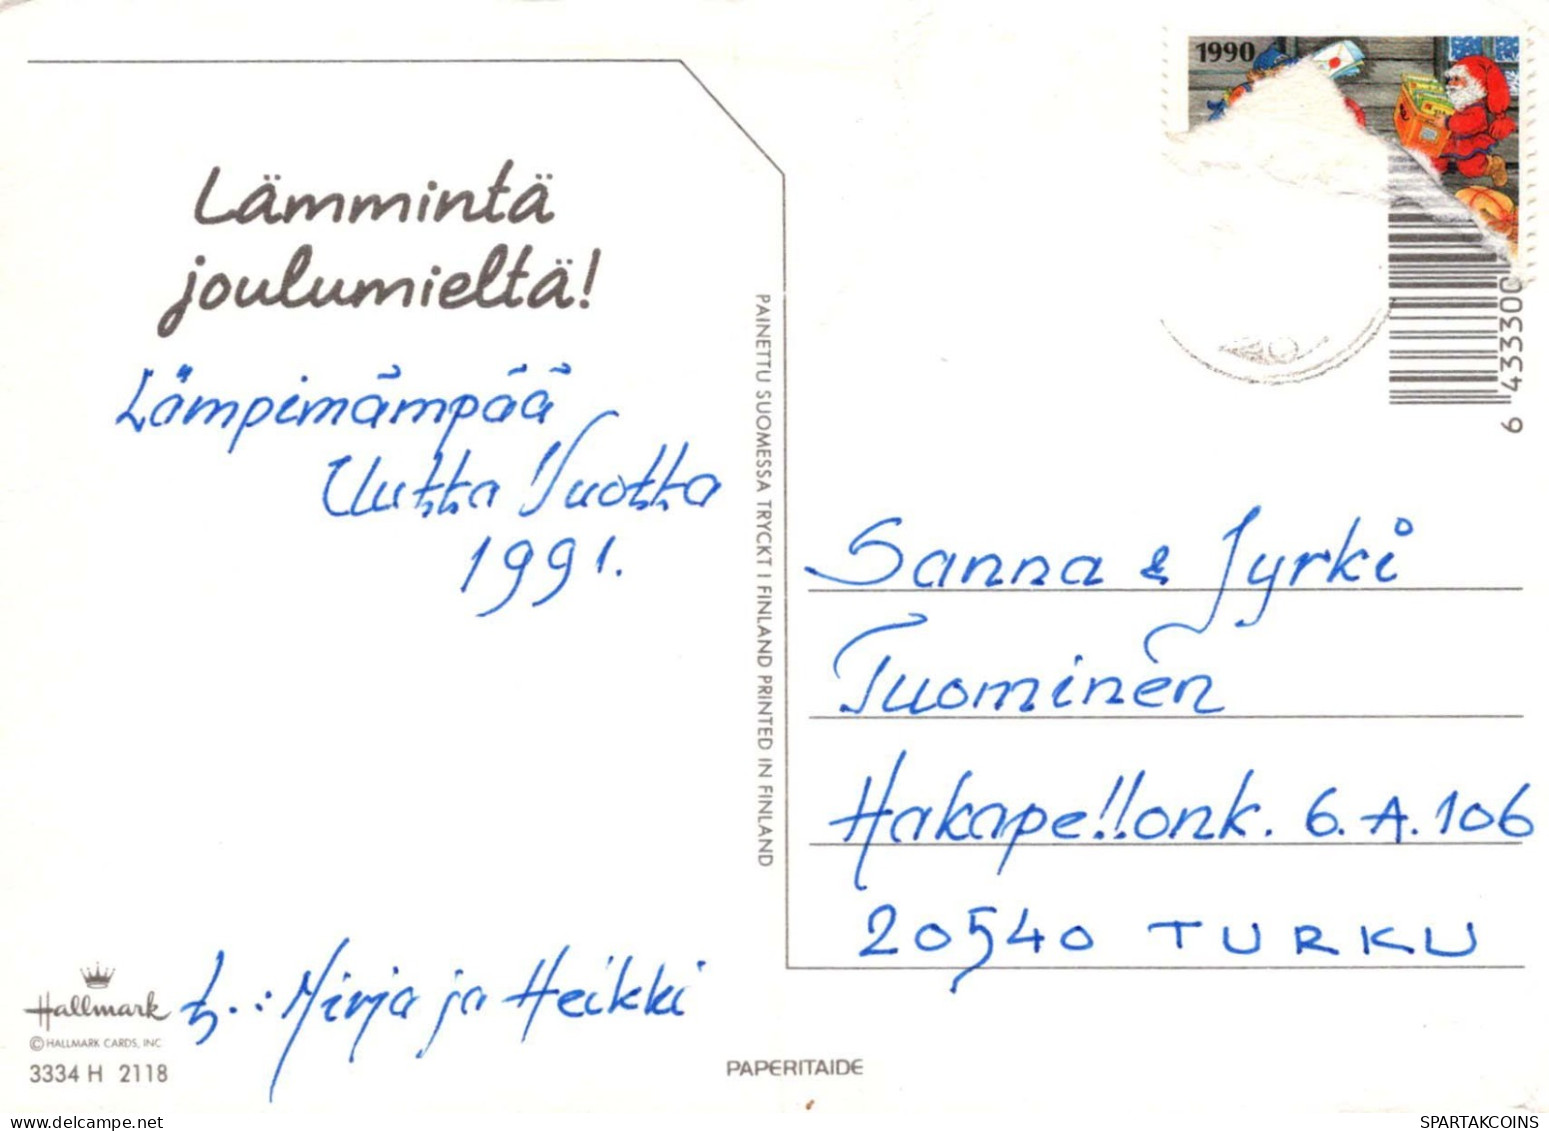 1990
Lämmintä
joulumieltä!
Lämpimämpää
Uutta Vuotta
1991.
t. : Mirja ja Heikki
Hallmark
© HALLMARK CARDS, INC
3334 H 2118
PAINETTU SUOMESSA TRYCKT I FINLAND PRINTED IN FINLAND
PAPERITAIDE
6 433300
Sanna & Jyrki
Tuominen
Hakapellonk. 6. A. 106
20540 TURKU
SPARTAKCOINS